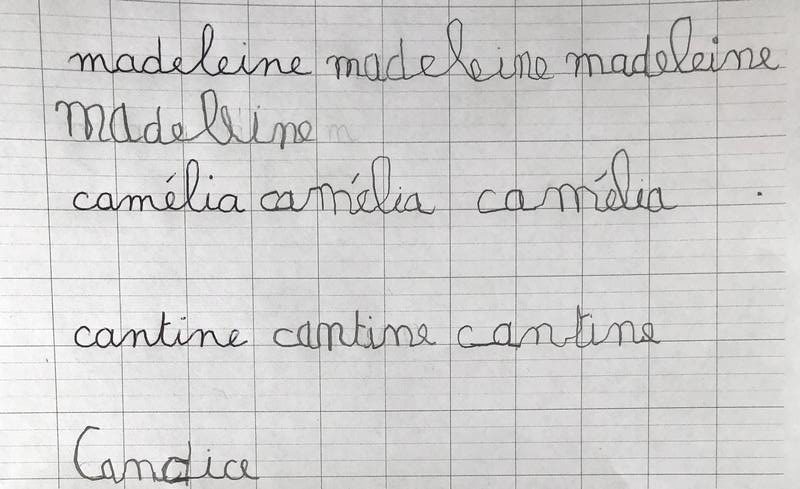 madeleine madeleine madeleine
madeleine
camélia camélia camélia
cantine cantine cantine
Candice